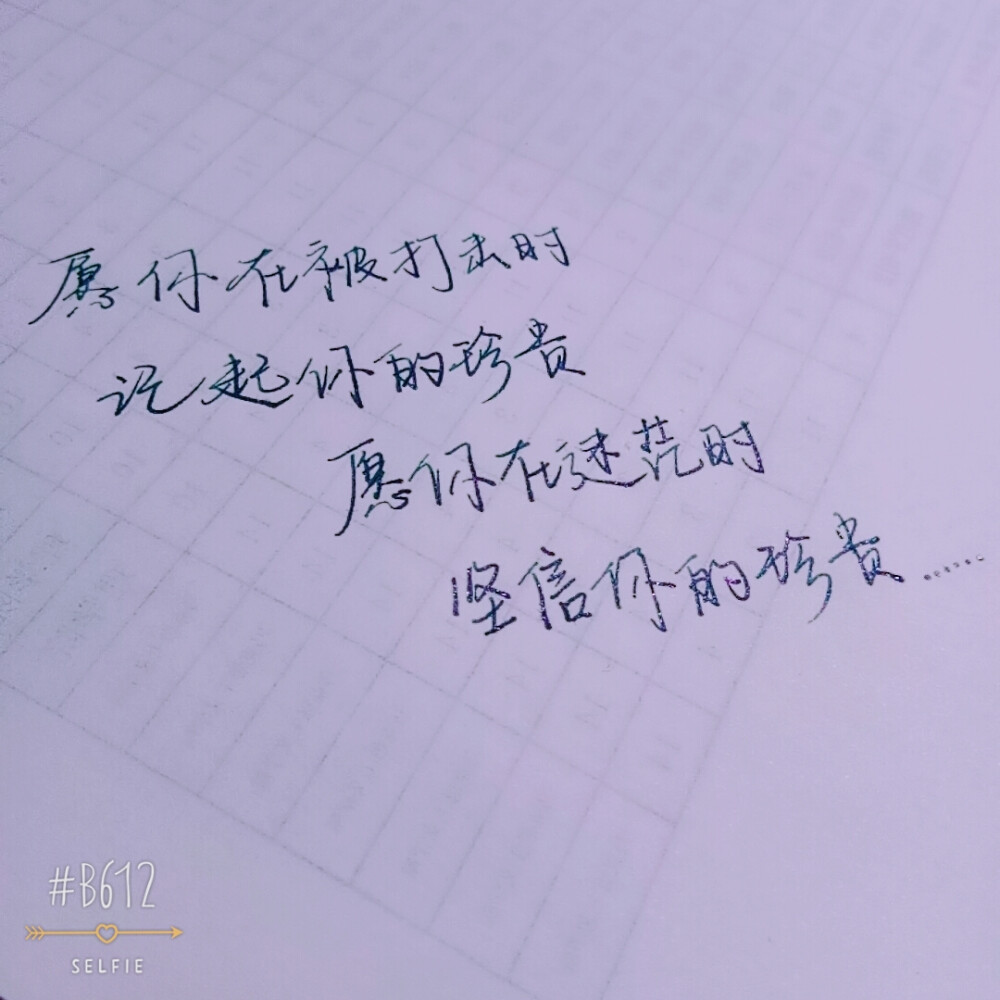 愿你在被打击时
记起你的珍贵
愿你在迷茫时
坚信你的珍贵……
#B612
SELFIE